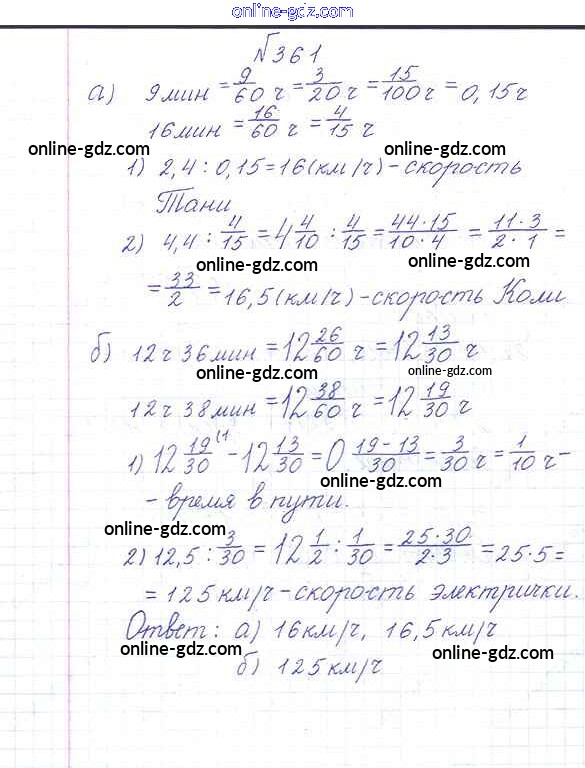 online-gdz.com
№361
а) 9 мин = 9/60 ч = 3/20 ч = 15/100 ч = 0,15 ч
16 мин = 16/60 ч = 4/15 ч
online-gdz.com online-gdz.com
1) 2,4 : 0,15 = 16 (км/ч) - скорость
Тани
2) 4,4 : 4/15 = 4 4/10 : 4/15 = 44·15/10·4 = 11·3/2·1 =
online-gdz.com online-gdz.com
= 33/2 = 16,5 (км/ч) - скорость Коли
б) 12 ч 36 мин = 12 26/60 ч = 12 13/30 ч
online-gdz.com online-gdz.com
12 ч 38 мин = 12 38/60 ч = 12 19/30 ч
1) 12 19/30 (1 - 12 13/30 = 0 19-13/30 = 3/30 ч = 1/10 ч -
online-gdz.com online-gdz.com
- время в пути.
online-gdz.com online-gdz.com
2) 12,5 : 3/30 = 12 1/2 : 1/30 = 25·30/2·3 = 25·5 =
= 125 км/ч - скорость электрички.
Ответ: а) 16 км/ч, 16,5 км/ч
online-gdz.com online-gdz.com
б) 125 км/ч